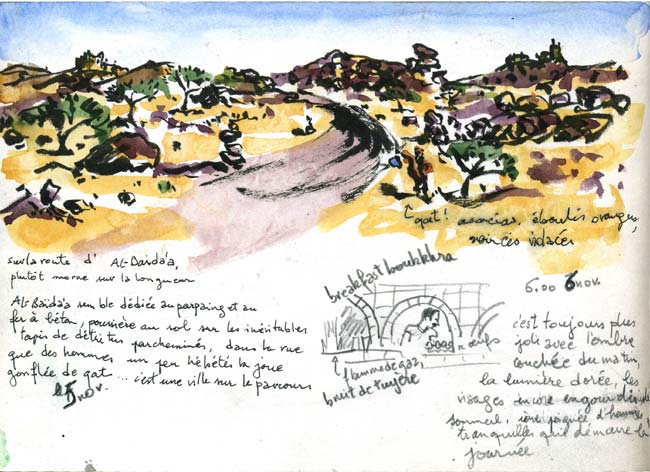 ↑qat! acacias, éboulis oranges,
noircis violacés
sur la route d' AL-Baida'a,
plutôt morne sur la longueur
AL-Baida'a semble dédiée au parpaing et au
fer à béton, poussière au sol sur les inévitables
tapis de détritus parcheminés, dans la rue
que des hommes un peu hébétés la joue
gonflée de qat ... c'est une ville sur le parcours
le 5 nov.
breakfast boukhhra
oeufs
↑flamme de gaz,
bruit de tuyère
6.00 6 nov.
c'est toujours plus
joli avec l'ombre
couchée du matin,
la lumière dorée, les
visages encore engourdis de
sommeil, poignée d'hommes
tranquilles qui démarre la
journée